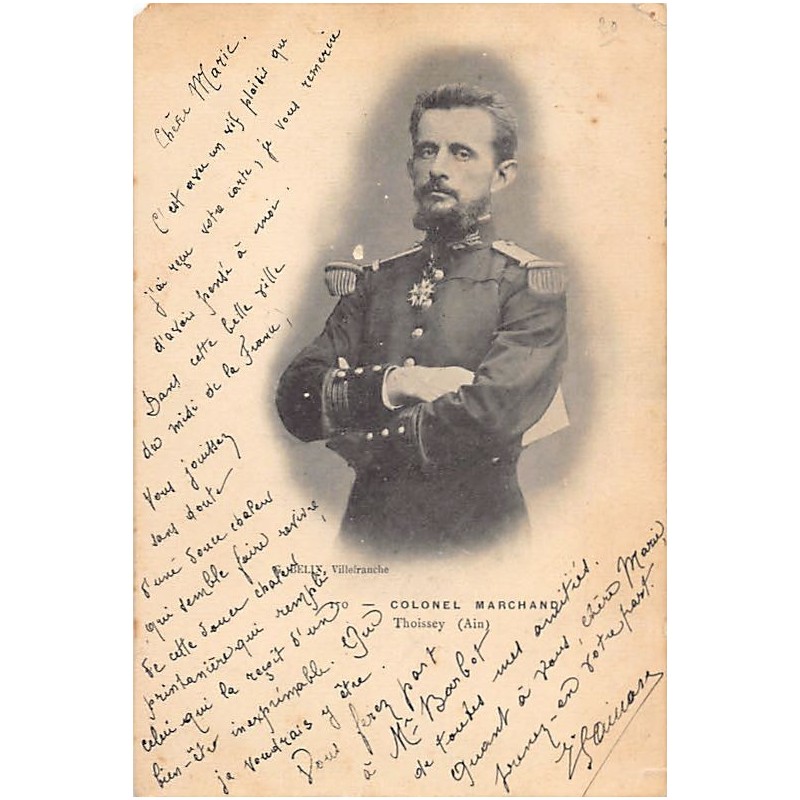 20
Chère Marie.
C'est avec un vif plaisir que
j'ai reçu votre carte, je vous remercie
d'avoir pensé à moi.
Dans cette belle ville
du midi de la France,
Vous jouissez
sans doute
d'une douce chaleur
qui semble faire revivre,
de cette douce chaleur
printanière qui remplit
celui qui la reçoit d'un
bien-être inexprimable. Que
je voudrais y être.
Vous ferez part
à Mr Barbot
de toutes mes amitiés.
Quant à vous, chère Marie,
prenez-en votre part.
BELIN, Villefranche
COLONEL MARCHAND
Thoissey (Ain)